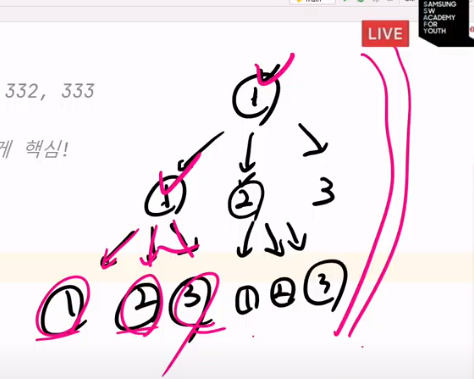 SAMSUNG
SW
ACADEMY
FOR
YOUTH
LIVE
332, 333
게 핵심!
1
1 2 3
1 2 3 1 2 3